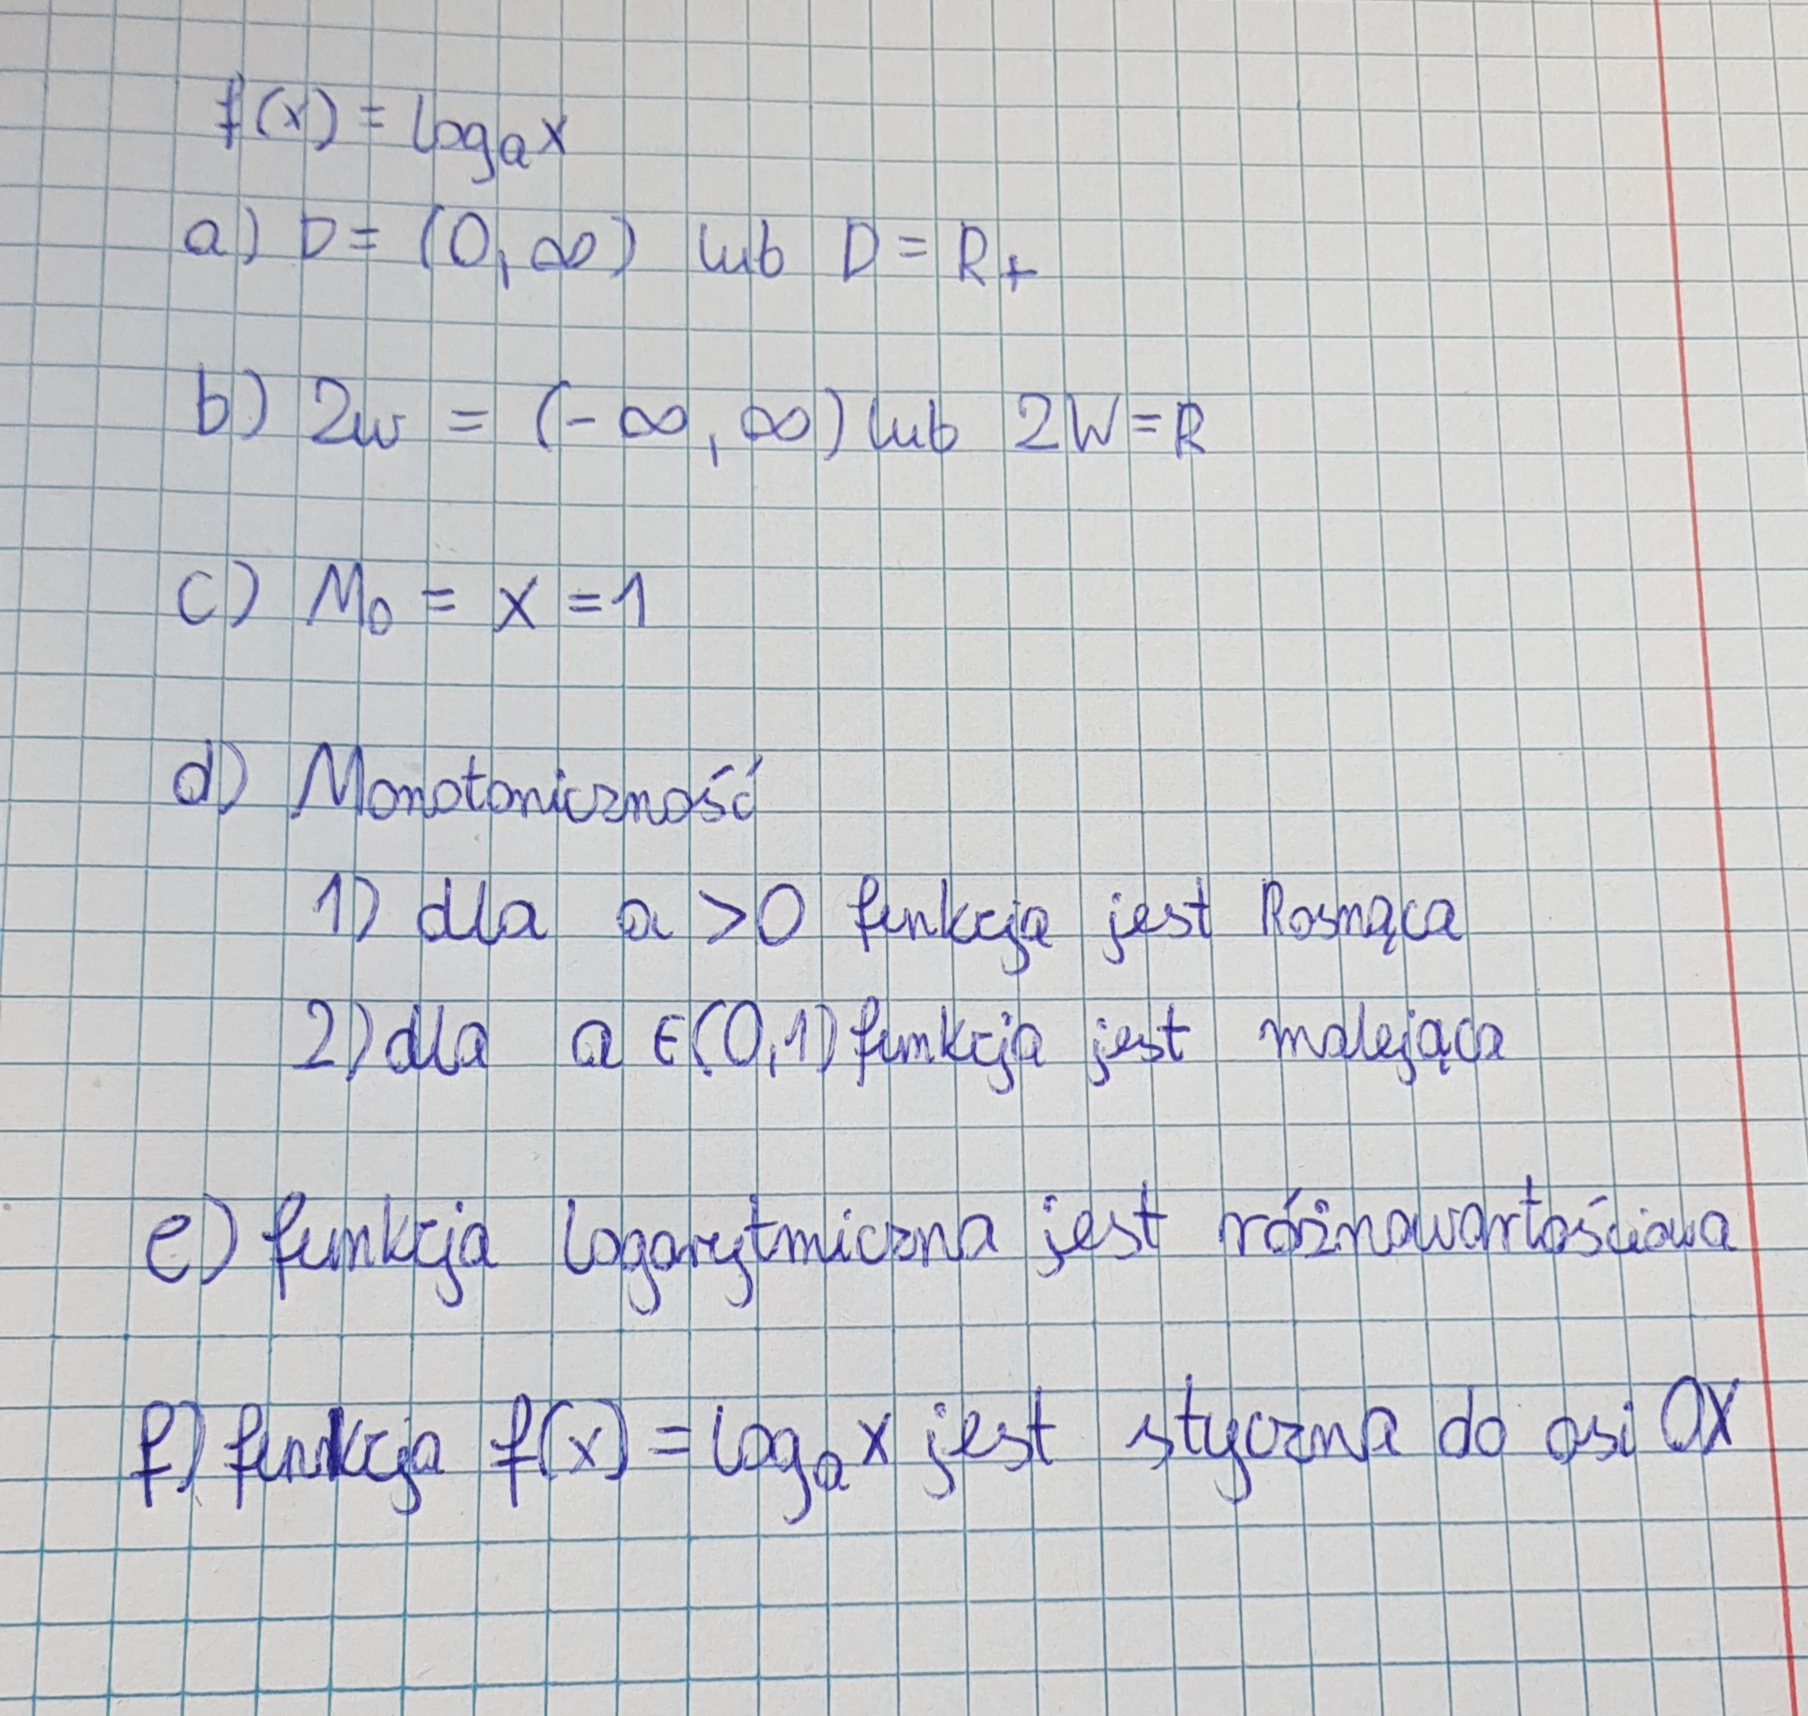 f(x) = log_a x
a) D = (0, ∞) lub D = R+
b) Zw = (-∞, ∞) lub ZW = R
c) M₀ = x = 1
d) Monotoniczność
1) dla a > 0 funkcja jest Rosnąca
2) dla a ∈ (0,1) funkcja jest malejąca
e) funkcja logarytmiczna jest różnowartościowa
f) funkcja f(x) = log_a x jest styczna do osi OX